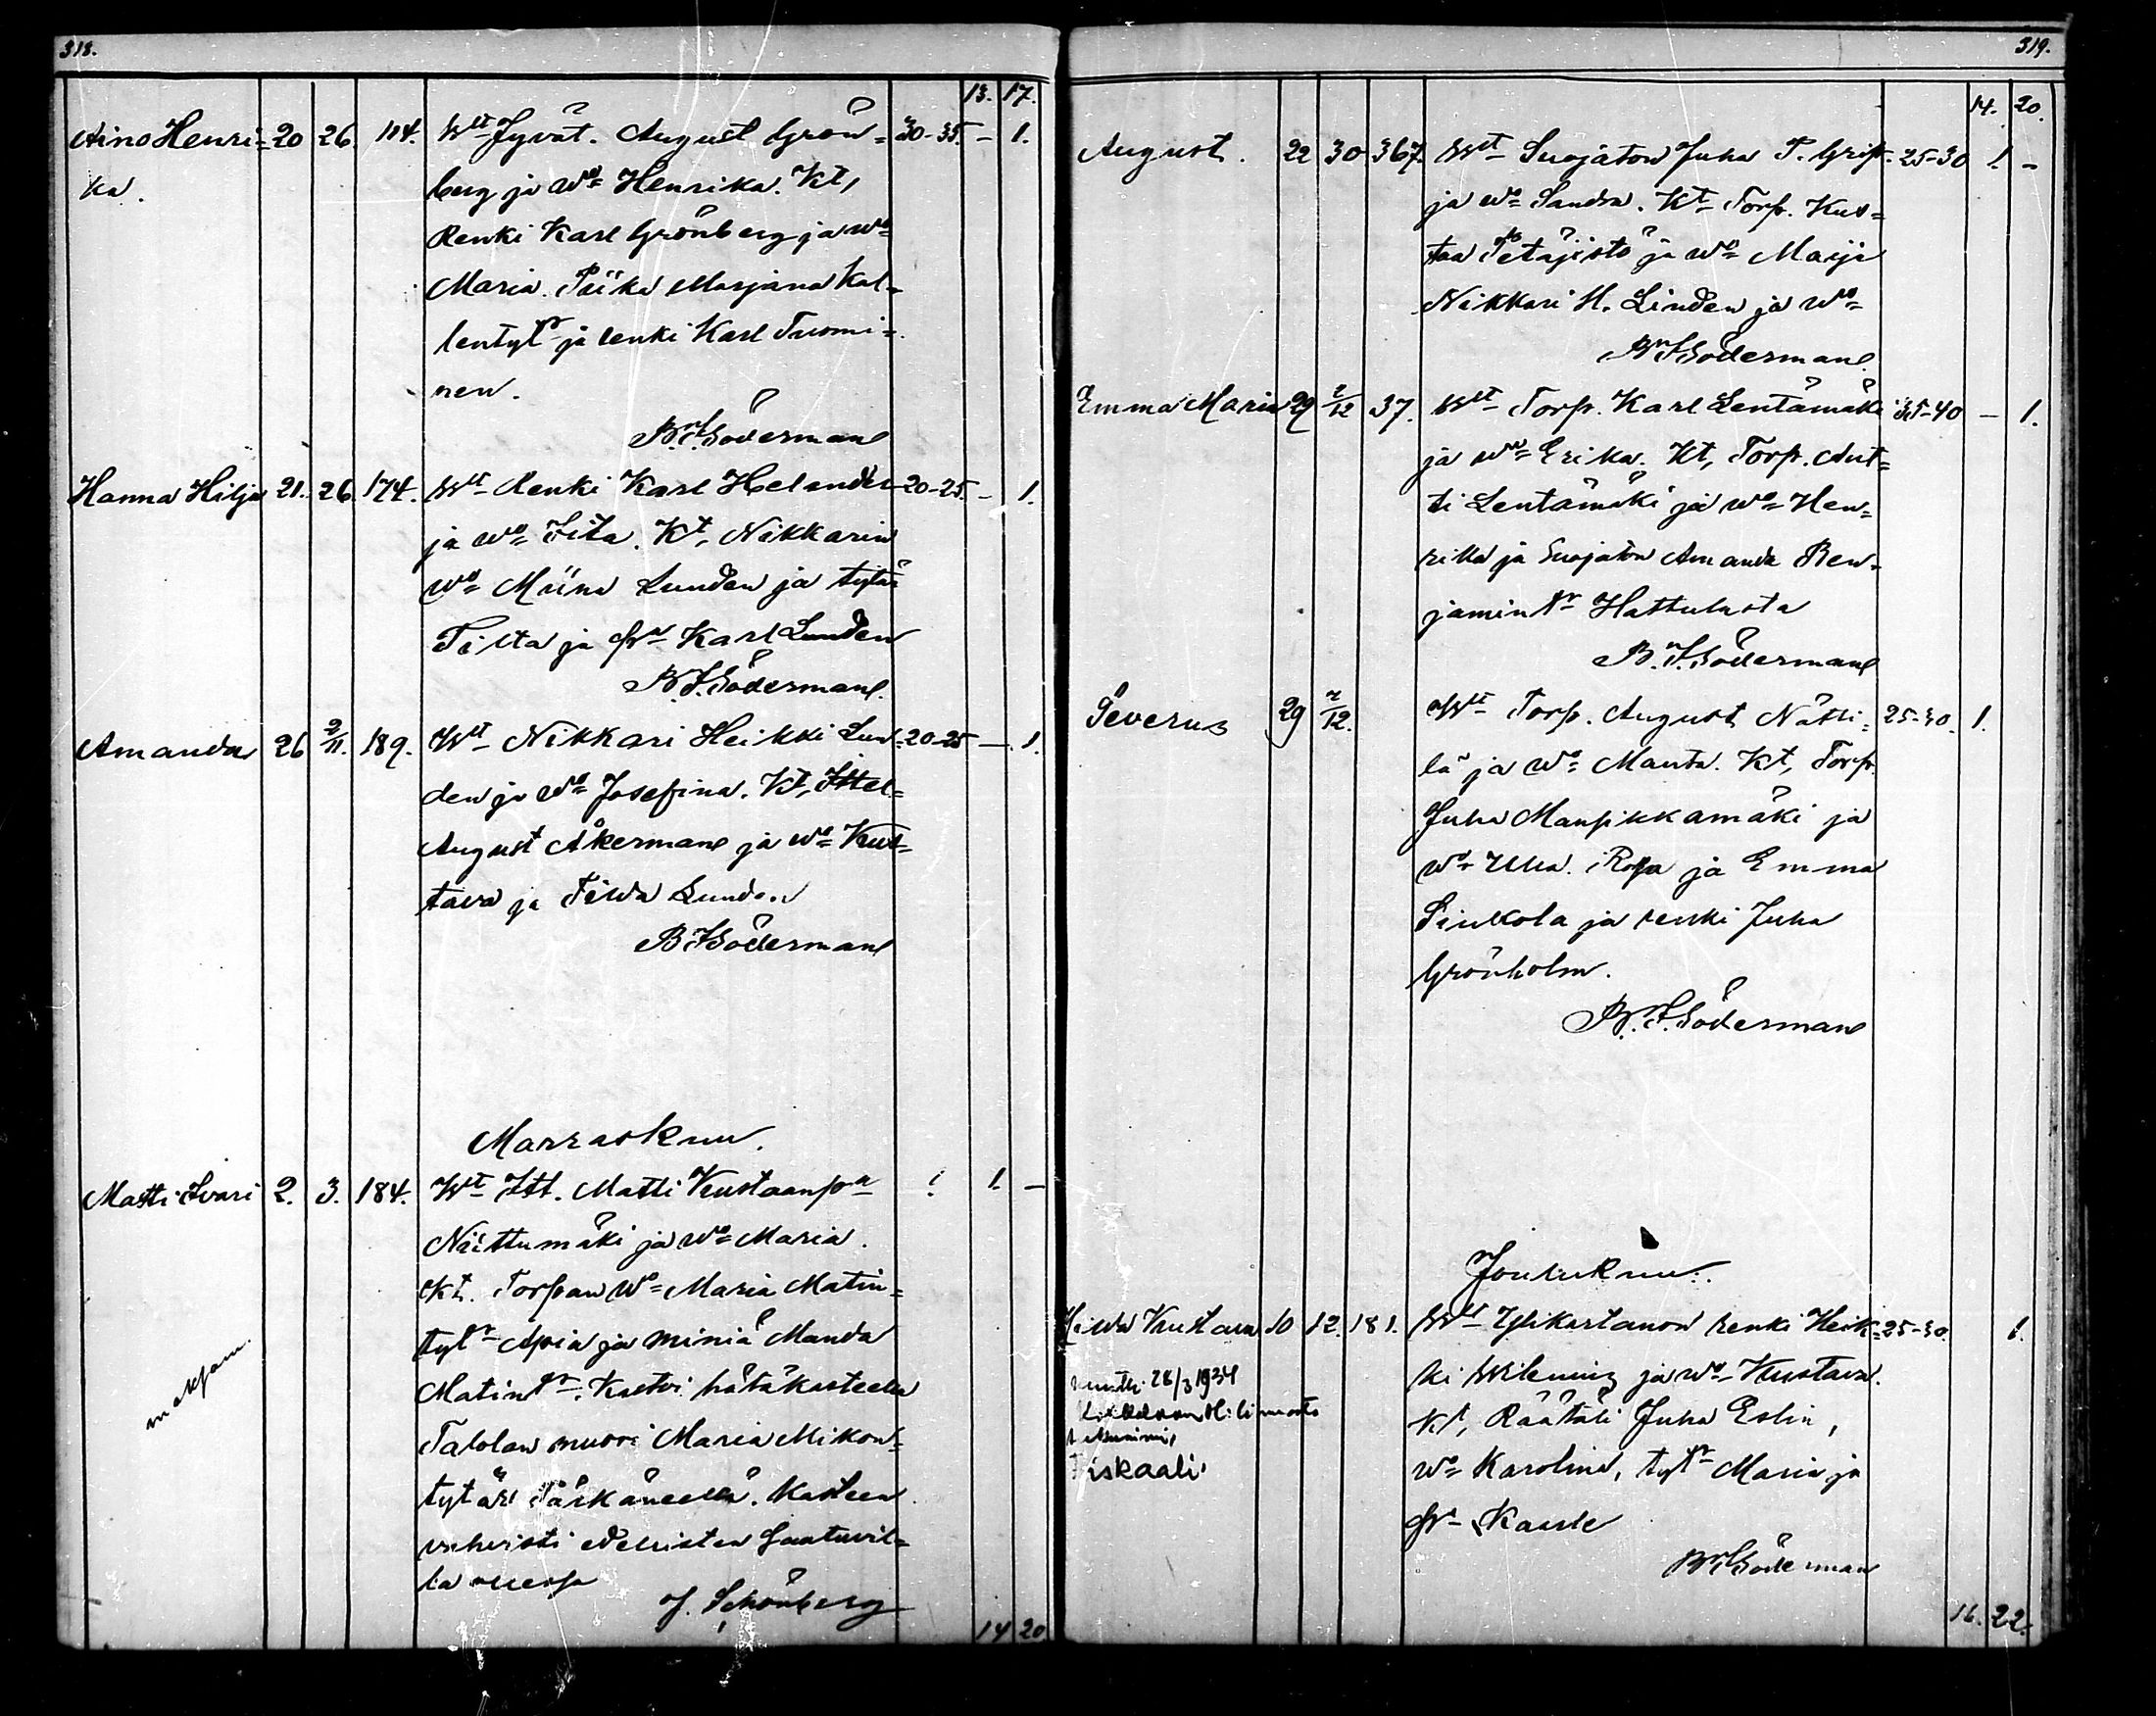 318.
13. 17.
Aino Henri= 20 26. 114. Wt Jyvät. August Grön= 30-35. - 1.
ka. berg ja Wo= Henrika. Kt,
Renki Karl Grönberg ja Wo=
Maria. Piika Marjana Kal=
lentyt ja renki Karl Tuomi=
nen.
B. F. Söderman
Hanna Hilja 21. 26. 174. Wt Renki Karl Helander 20-25. - 1.
ja Wo= Fita. Kt, Nikkarin
Wo= Miina Lunden ja tytär
Tilta ja Karl Lunden
B. F. Söderman.
Amanda 26 2/11. 189. Wt Nikkari Heikki Lun= 20-25 - 1.
den ja Wo= Josefina. Kt, Ittel=
August Åkerman ja Wo= Kus=
tava ja Tilda Lunden
B F Söderman
Marraskuu.
Matti Ivari 2. 3. 184. Wt Itt. Matti Kustaanp ! 1. -
Niittumäki ja Wo= Maria.
Kt. Torpan Wo= Maria Matin=
tyt ja miniä Manda
Matint. Kastoi hätäkasteella
maksam.
Talolan muori Maria Mikon=
tytär Kasteen
vahvisti edellisten
la
J. Schönberg
14 20
319.
14. 20.
August. 22 30 367. Wt Suojaton Juha T. Grip. 25-30 1. -
ja Wo= Sandra. Kt Torp. Kus=
taa Petäjistö ja Wo= Maija
Nikkari H. Linden ja Wo=
B F Söderman.
Emma Maria 29 2/12 37. Wt Torp. Karl Lentamäki 35-40 - 1.
ja Wo= Erika. Kt, Torp. Ant=
ti Lentamäki ja Wo= Hen=
rika ja Suojaton Amanda Ben=
jamint Hattulasta
B. F. Söderman
Severus 29 2/12. Wt Torp. August Nätti= 25-30. 1.
lä ja Wo= Manta. Kt, Torp.
Juha Manpikkamäki ja
Wo= Ulla. Rosa ja Emma
Sinkola ja renki Juha
Grönholm.
B. F. Söderman
Joulukuu.
Hilda Kustava 10 12. 181. Wt Ylikartanon renki Heik= 25-30. 1.
ki Wilenius ja Wo= Kustava.
28/3 1934
Kt, Räätäli Juha Eslin,
Wo= Karolina, tyt Maria ja
Fiskaali
Kaarle
B F Söderman
16. 22.